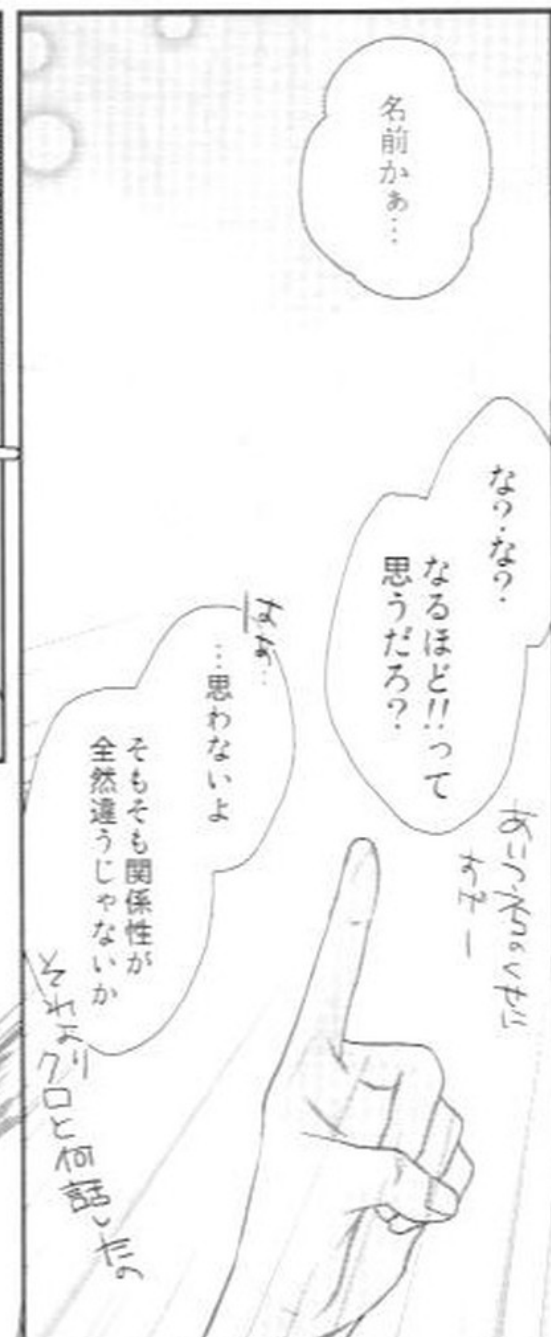 名前かぁ…
な?な?
なるほど!!って
思うだろ?
あいつネコのくせに
すげー
はぁ…
…思わないよ
そもそも関係性が
全然違うじゃないか
それよりクロと何話したの